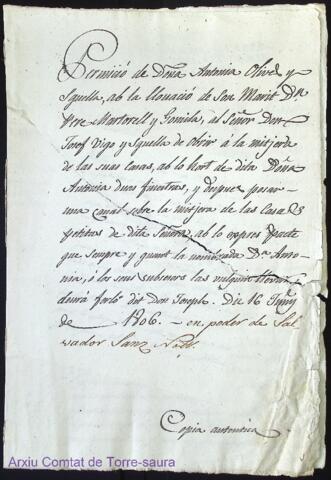 Permissió de Dña Antonina Olives y
Squella, ab la llouació de son Marit Dn
Pere Martorell y Gomila, al Señor Don
Josef Vigo y Squella de obrir á la mitjera
de las suas Casas, ab lo Hort de dita Dñna
Antonia dues finestras, y despues posar
una canal sobre la mitjera de las Casas
petitas de dita Señora, ab lo expres pacte
que sempre y quant la nominada Dª Anto-
nia, ó los seus subcesors las vulguin
deurá ferlo dit Don Joseph. Die 16 Juny
de 1806. - en poder de Sal-
vador Sanz Notº.
Copia autentica
Arxiu Comtat de Torre-saura